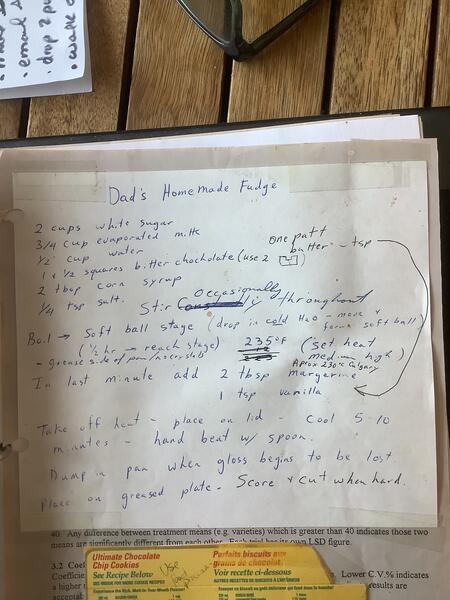 · email
· drop 2
· wake
Dad's Homemade Fudge
2 cups white sugar
3/4 cup evaporated milk
1/2 cup water
1 & 1/2 squares bitter chocholate (use 2
one patt
butter - tsp
2 tbsp corn syrup
1/4 tsp salt.
Occasionally
Stir Constantly throughout
Boil → Soft ball stage (drop in cold H2O - move &
form soft ball)
(1/2 hr → reach stage) 235°F (set heat
medium high)
- grease side of pan
Aprox 230° Calgary
In last minute add 2 tbsp margerine
1 tsp vanilla
Take off heat - place on lid - cool 5-10
minutes - hand beat w/ spoon.
Dump in pan when gloss begins to be lost.
Place on greased plate. Score & cut when hard.
40. Any difference between treatment means (e.g. varieties) which is greater than 40 indicates those two
means are significantly different from each other. Each trial has its own LSD figure.
3.2 Coef
Coefficie
a higher
acceptab
Lower C.V.% indicates
results are
Ultimate Chocolate
Chip Cookies
See Recipe Below
Use
Parfaits biscuits aux
grains de chocolat.
Voir recette ci-dessous